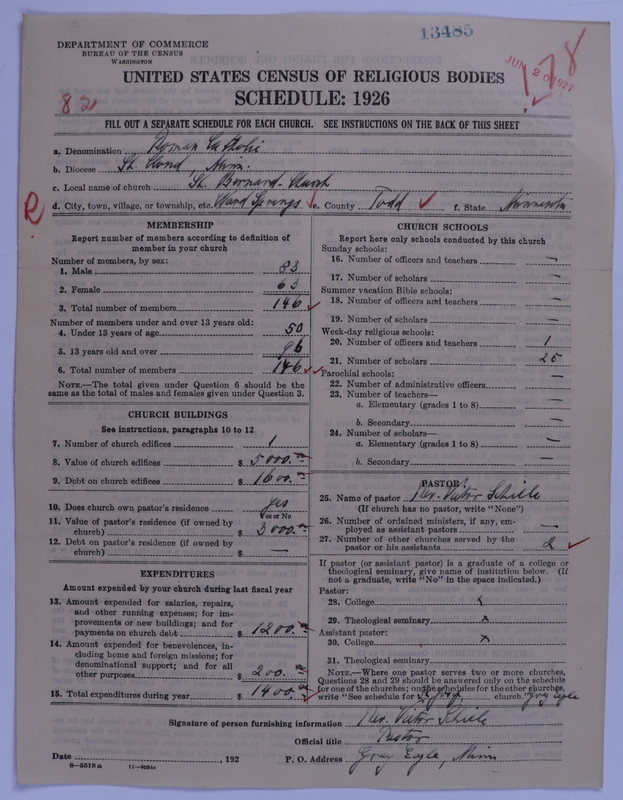 13485
DEPARTMENT OF COMMERCE
BUREAU OF THE CENSUS
WASHINGTON
JUN 20 1927
178
82
UNITED STATES CENSUS OF RELIGIOUS BODIES
SCHEDULE: 1926
FILL OUT A SEPARATE SCHEDULE FOR EACH CHURCH. SEE INSTRUCTIONS ON THE BACK OF THIS SHEET
a. Denomination Roman Catholic
b. Diocese St. Cloud, Minn.
c. Local name of church St. Bernard Church
R
d. City, town, village, or township, etc. Ward Springs e. County Todd f. State Minnesota
MEMBERSHIP
Report number of members according to definition of
member in your church
Number of members, by sex:
1. Male 83
2. Female 63
3. Total number of members 146
Number of members under and over 13 years old:
4. Under 13 years of age 50
5. 13 years old and over 96
6. Total number of members 146
NOTE.—The total given under Question 6 should be the
same as the total of males and females given under Question 3.
CHURCH BUILDINGS
See instructions, paragraphs 10 to 12
7. Number of church edifices 1
8. Value of church edifices $ 5000.00
9. Debt on church edifices $ 1600.00
10. Does church own pastor's residence yes
Yes or No
11. Value of pastor's residence (if owned by
church) $ 3000.00
12. Debt on pastor's residence (if owned by
church) $ —
EXPENDITURES
Amount expended by your church during last fiscal year
13. Amount expended for salaries, repairs,
and other running expenses; for im-
provements or new buildings; and for
payments on church debt $ 1200.00
14. Amount expended for benevolences, in-
cluding home and foreign missions; for
denominational support; and for all
other purposes $ 200.00
15. Total expenditures during year $ 1400.00
CHURCH SCHOOLS
Report here only schools conducted by this church
Sunday schools:
16. Number of officers and teachers —
17. Number of scholars —
Summer vacation Bible schools:
18. Number of officers and teachers —
19. Number of scholars —
Week-day religious schools:
20. Number of officers and teachers 1
21. Number of scholars 25
Parochial schools:
22. Number of administrative officers —
23. Number of teachers—
a. Elementary (grades 1 to 8) —
b. Secondary —
24. Number of scholars—
a. Elementary (grades 1 to 8) —
b. Secondary —
PASTOR
25. Name of pastor Rev. Victor Schiele
(If church has no pastor, write "None")
26. Number of ordained ministers, if any, em-
ployed as assistant pastors —
27. Number of other churches served by the
pastor or his assistants 2
If pastor (or assistant pastor) is a graduate of a college or
theological seminary, give name of institution below. (If
not a graduate, write "No" in the space indicated.)
Pastor:
28. College x
29. Theological seminary x
Assistant pastor:
30. College x
31. Theological seminary
NOTE.—Where one pastor serves two or more churches,
Questions 28 and 29 should be answered only on the schedule
for one of the churches; on the schedules for the other churches,
write "See schedule for church." Gray Eagle
Signature of person furnishing information Rev. Victor Schiele
Official title Pastor
Date , 192 P. O. Address Gray Eagle, Minn
8—5518 a 11—9554